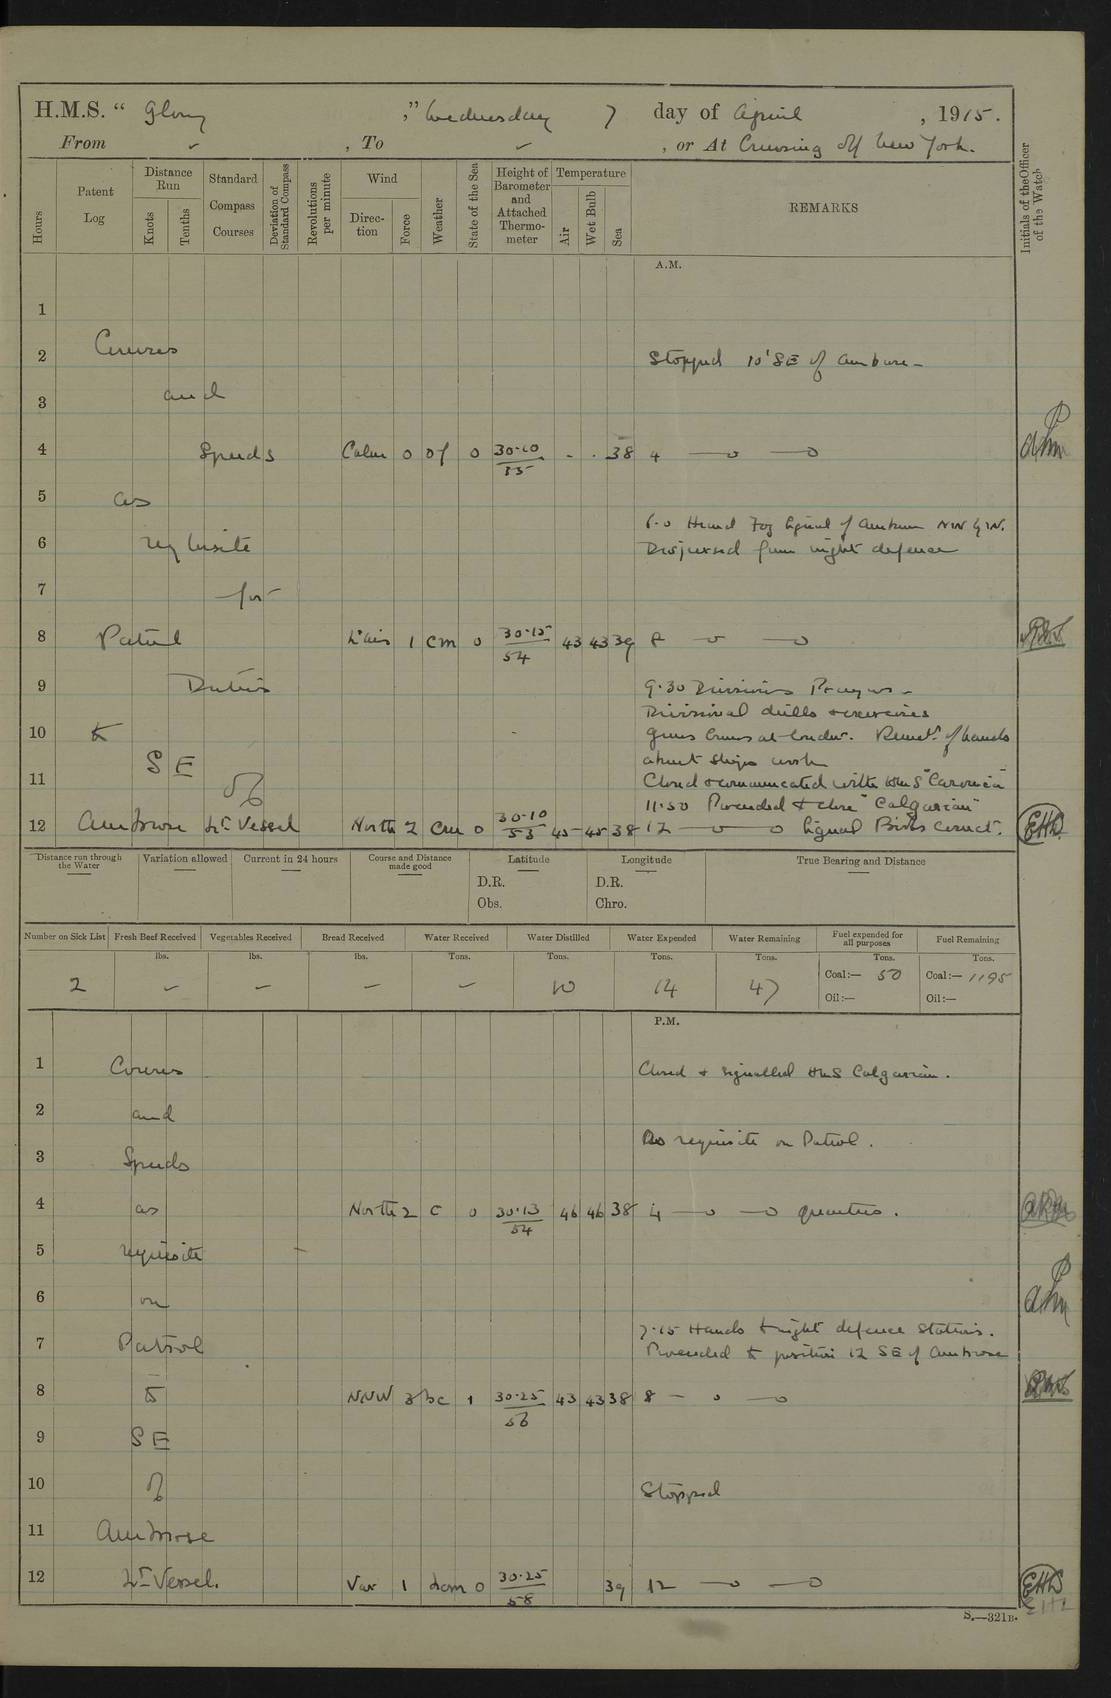 H.M.S. “ Glory ,” Wednesday 7 day of April , 1915.
From , To , or At Cruising off New York.
Hours
Patent Log
Distance Run
Knots
Tenths
Standard Compass Courses
Deviation of Standard Compass
Revolutions per minute
Wind
Direction
Force
Weather
State of the Sea
Height of Barometer and Attached Thermometer
Temperature
Air
Wet Bulb
Sea
REMARKS
Initials of the Officer of the Watch
A.M.
1
2 Courses Stopped 10' SE of Ambrose
3 and
4 Speeds Calm 0 of 0 30·10 38 4
5 as
6·0 Heard Fog Signal of Ambrose NW by W.
6 requisite Dispersed from night defence
7 for
8 Patrol Lt airs 1 cm 0 30·15 54 43 43 39 8
9 Duties 9·30 Divisions Prayers
Divisional drills & exercises
10 to Guns Crews at loader. Remdr. of hands
SE about ships work
11 of Closed & communicated with HMS "Caronia"
11·50 Proceeded to close "Calgarian"
12 Ambrose Lt Vessel North 2 cm 0 30·10 53 45 45 38 12 Signal Books correct.
Distance run through the Water
Variation allowed
Current in 24 hours
Course and Distance made good
Latitude
D.R.
Obs.
Longitude
D.R.
Chro.
True Bearing and Distance
Number on Sick List
Fresh Beef Received
Vegetables Received
Bread Received
Water Received
Water Distilled
Water Expended
Water Remaining
Fuel expended for all purposes
Fuel Remaining
lbs. lbs. lbs. Tons. Tons. Tons. Tons. Tons. Tons.
2 10 14 47 Coal:— 50 Coal:— 1195
Oil:— Oil:—
P.M.
1 Courses Closed & signalled HMS Calgarian.
2 and
As requisite on Patrol.
3 Speeds
4 as North 2 c 0 30·13 54 46 46 38 4 quarters.
5 requisite
6 on
7·15 Hands to night defence Stations.
7 Patrol Proceeded to position 12 SE of Ambrose
8 to NNW 3 bc 1 30·25 56 43 43 38 8
9 SE
10 of Stopped
11 Ambrose
12 Lt Vessel. Var 1 0 30·25 58 39 12
S.—321B.